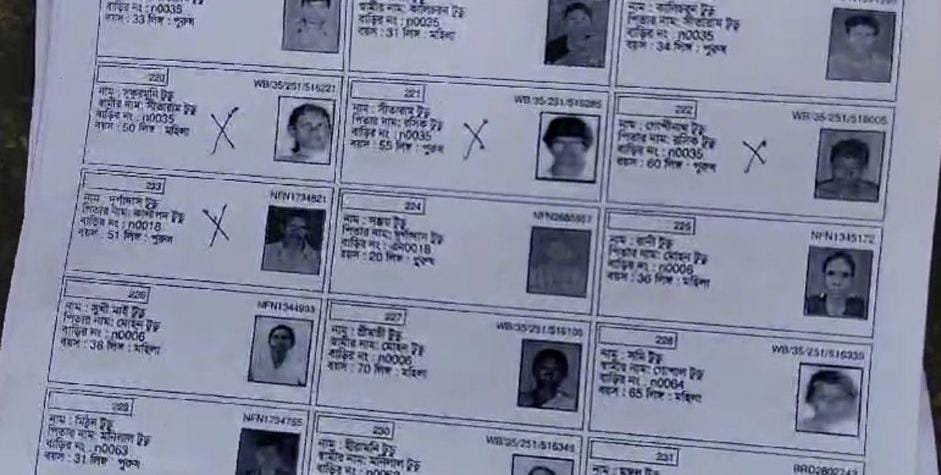 বাড়ির নং : n0035
বয়স : 33 লিঙ্গ : পুরুষ
স্বামীর নাম: কালিচরন টুডু
বাড়ির নং : n0035
বয়স : 31 লিঙ্গ : মহিলা
নাম : কালিচরন টুডু
পিতার নাম: সীতারাম টুডু
বাড়ির নং : n0035
বয়স : 34 লিঙ্গ : পুরুষ
220
WB/35/251/516221
নাম : সুকুরমুনি টুডু
স্বামীর নাম: সীতারাম টুডু
বাড়ির নং : n0035
বয়স : 50 লিঙ্গ : মহিলা
221
WB/35/251/516285
নাম : সীতারাম টুডু
পিতার নাম: রসিক টুডু
বাড়ির নং : n0035
বয়স : 55 লিঙ্গ : পুরুষ
222
WB/35/251/516005
নাম : গোপীনাথ টুডু
পিতার নাম: রসিক টুডু
বাড়ির নং : n0035
বয়স : 60 লিঙ্গ : পুরুষ
223
NFN1734821
নাম : দূর্গাদাস টুডু
পিতার নাম: টুডু
বাড়ির নং : n0018
বয়স : 51 লিঙ্গ : পুরুষ
224
নাম : সঞ্জয় টুডু
পিতার নাম: দূর্গাদাস টুডু
বাড়ির নং : এন0018
বয়স : 20 লিঙ্গ : পুরুষ
225
NFN1345172
নাম : রানী টুডু
পিতার নাম: মোহন টুডু
বাড়ির নং : n0006
বয়স : 36 লিঙ্গ : মহিলা
226
NFN1344993
নাম : সুমী মাই টুডু
পিতার নাম: মোহন টুডু
বাড়ির নং : n0006
বয়স : 38 লিঙ্গ : মহিলা
227
WB/35/251/516106
নাম : শ্রীমতী টুডু
স্বামীর নাম: মোহন টুডু
বাড়ির নং : n0006
বয়স : 70 লিঙ্গ : মহিলা
228
WB/35/251/516339
নাম : সমি টুডু
স্বামীর নাম: গোপাল টুডু
বাড়ির নং : n0064
বয়স : 65 লিঙ্গ : মহিলা
229
NFN1734755
নাম : মিঠুন টুডু
পিতার নাম: মনিলাল টুডু
বাড়ির নং : n0063
বয়স : 31 লিঙ্গ : পুরুষ
230
WB/35/251/516348
নাম : হীরামনি টুডু
স্বামীর নাম: মনিলাল টুডু
বাড়ির নং : n0063
231
BRD2802243
নাম : মঙ্গল টুডু